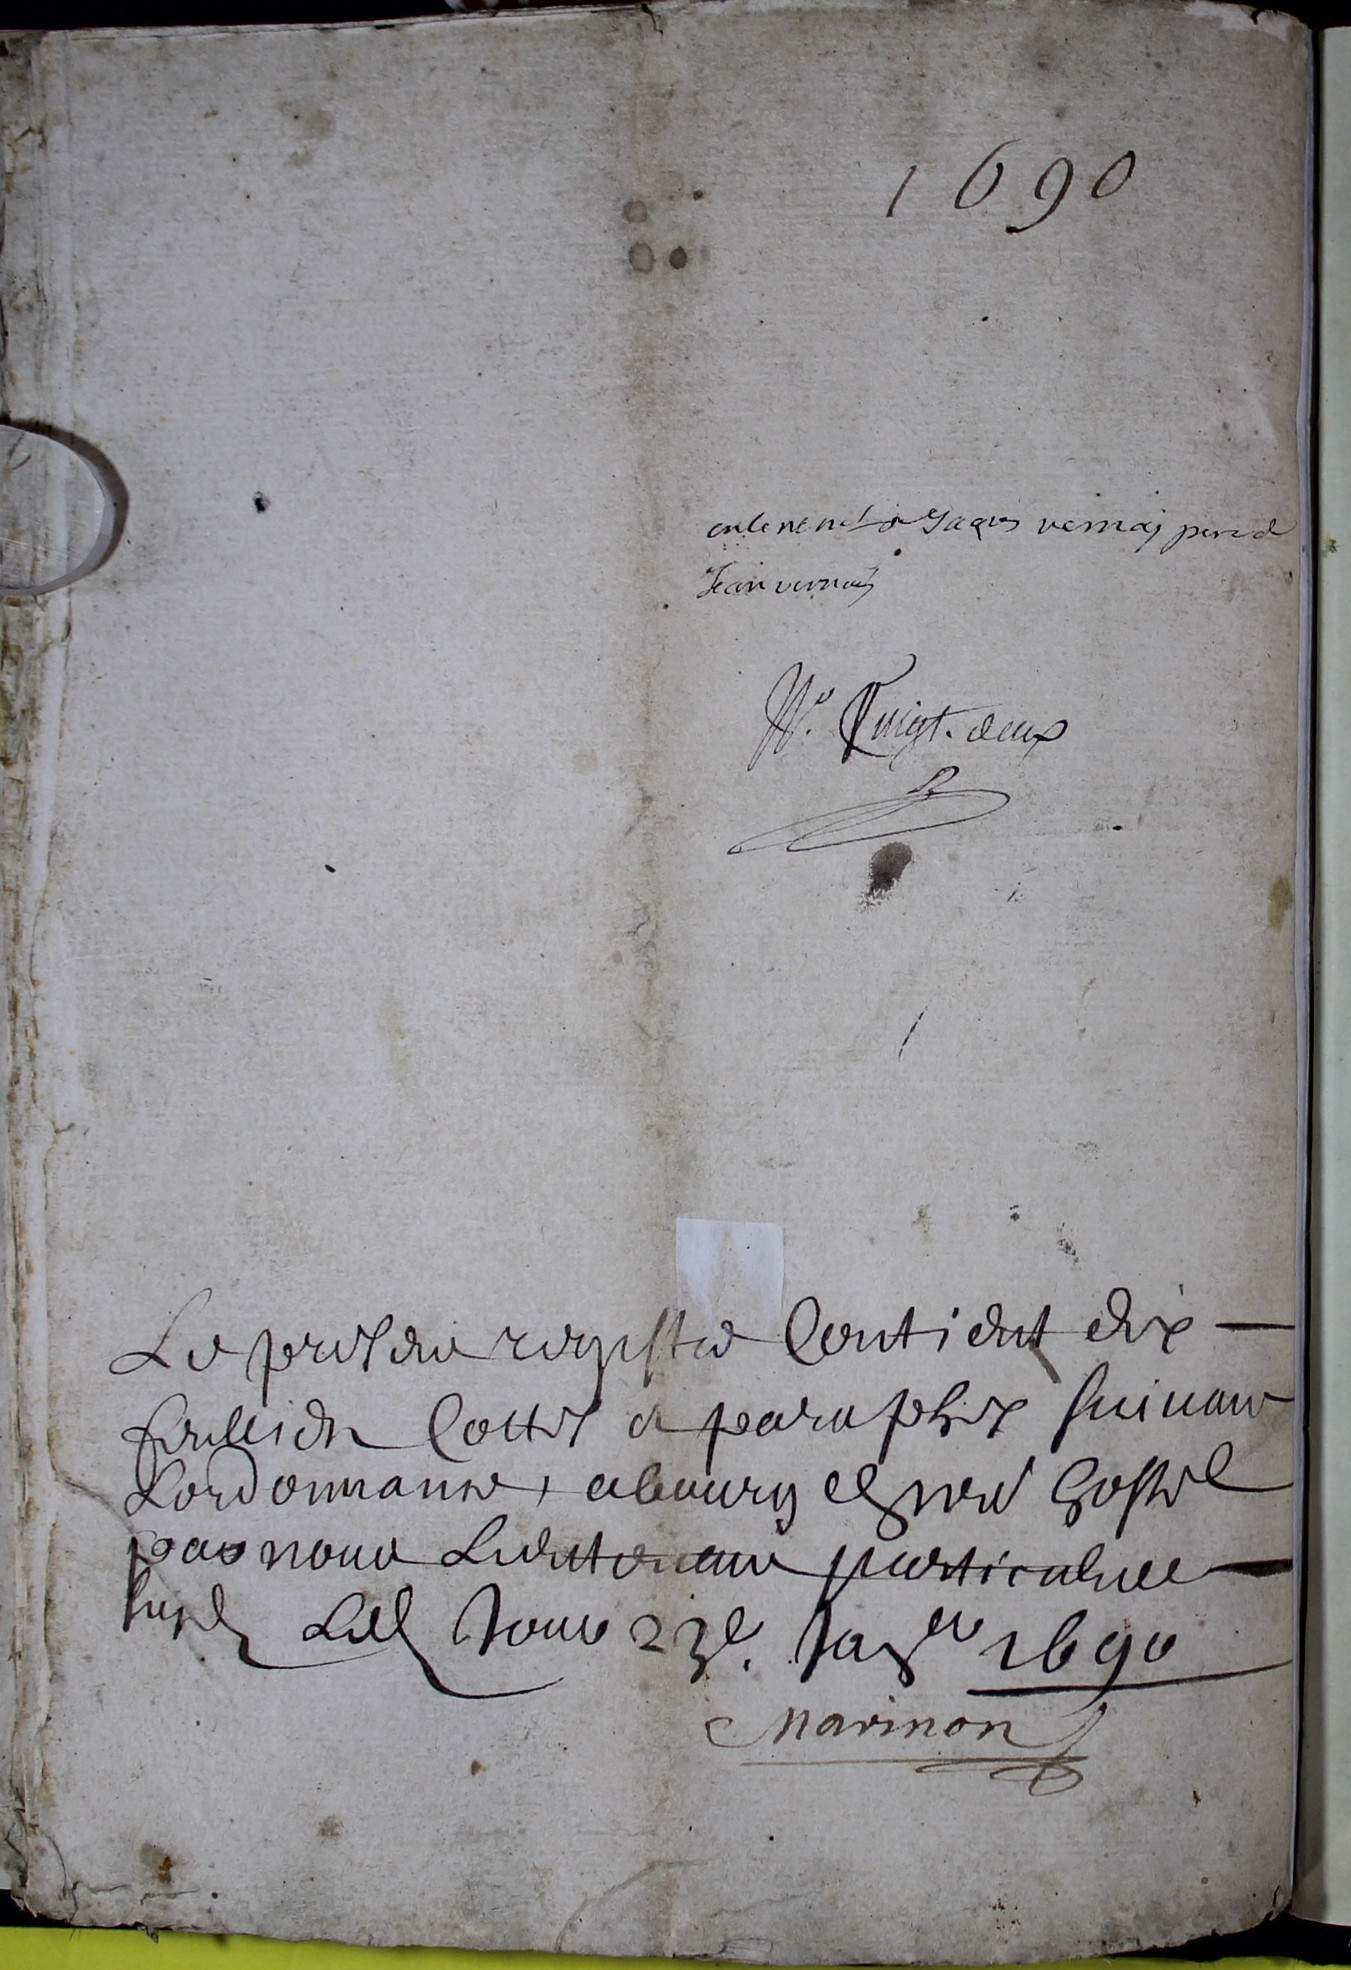 1690
enterement de Jaques vernay pere de
Jean vernay
N.º Vingt. deux
Le present registre Contient dix
feuillets Cottes et paraphex suivant
Lordonnance, a bourg en nre hostel
par nous Lieutenant particulier
Le Jour 23e. Janer 1690
Marinon